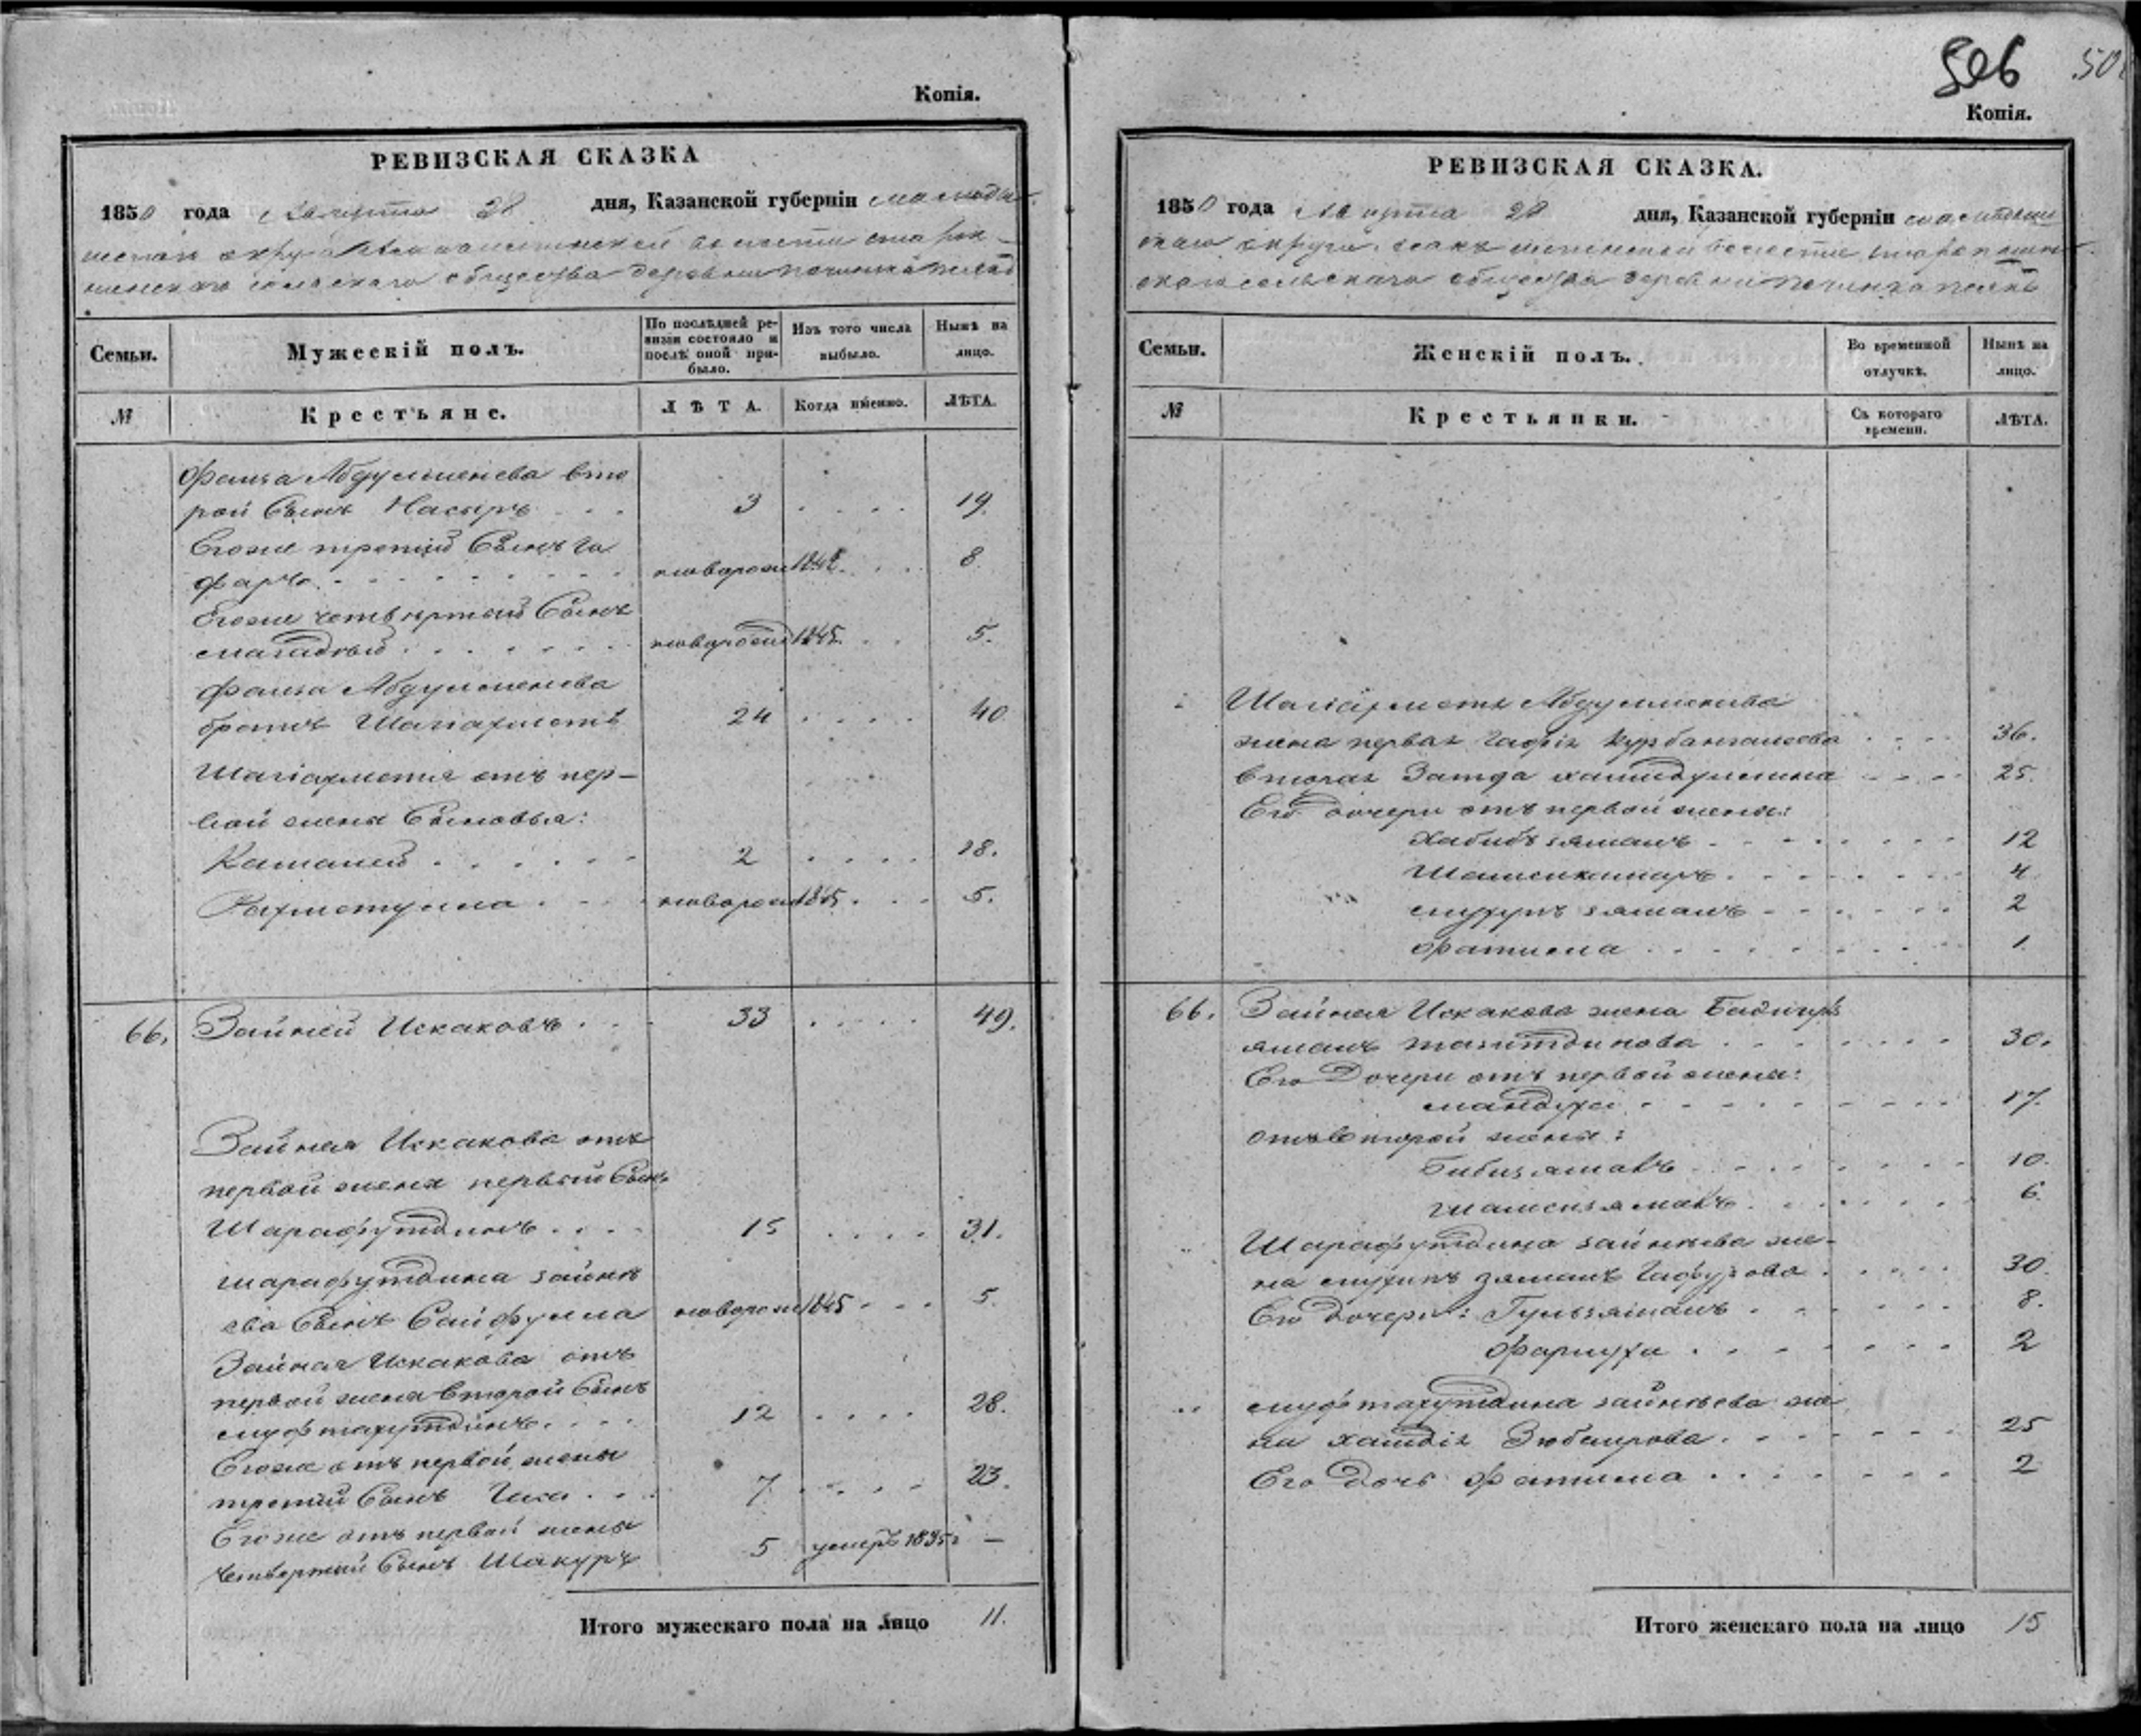 Копія.
РЕВИЗСКАЯ СКАЗКА
1850 года Августа 28 дня, Казанской губерніи мамадыш-
скаго округа волости
сельскаго общества деревни починка
Семьи.
Мужескій полъ.
По послѣдней ревизіи состояло и послѣ оной прибыло.
Изъ того числа выбыло.
Нынѣ на лицо.
№
Крестьяне.
ЛѢТА.
Когда именно.
ЛѢТА.
Фаиза Абдулменева вто
рой Сынъ Насыръ 3 19.
Егоже третій Сынъ Га
фаръ новорож 1842. 8
Егоже четвертый Сынъ
новорож 1845. 5.
Фаиза Абдулменева
братъ Шагіахметъ 24 40
Шагіахметя отъ пер-
вой жены Сыновья:
Камалей 2 18.
Рахметулла новорож 1845 5.
66. Зайней Искаковъ 33 49.
Зайнея Искакова отъ
первой жены первый Сынъ
Шарафутдинъ 15 31.
шарафутдина зайне
ева Сынъ Сайфулла новорож 1845 5.
Зайнея Искакова отъ
первой жены второй Сынъ
муфтахутдинъ 12 28.
Егоже отъ первой жены
третій Сынъ Иса 7 23.
Егоже отъ первой жены
четвертый Сынъ Шакуръ 5 умеръ 1835 —
Итого мужескаго пола на лицо 11.
506
Копія.
РЕВИЗСКАЯ СКАЗКА.
1850 года Августа 28 дня, Казанской губерніи мамадыш
скаго округа волости
скаго сельскаго общества деревни починка
Семьи.
Женскій полъ.
Во временной отлучкѣ.
Нынѣ на лицо.
№
Крестьянки.
Съ котораго времени.
ЛѢТА.
Шагіахметя Абдулменева
жена первая Гафія Курбангалеева 36.
вторая 25.
Его дочери отъ первой жены:
Хабибзяманъ 12
Шамсикамаръ 4
2
Фатима 1
66. Зайнея Искакова жена Бадигуз
яманъ 30.
Его Дочери отъ первой жены:
17.
отъ второй жены:
Бибизямалъ 10.
Шамсизямалъ 6.
Шарафутдина зайнеева же-
на зяманъ Гафурова 30.
Его Дочери: Гульзяманъ 8.
2
муфтахутдина зайнеева же
на Зюбаирова 25
Его Дочь Фатима 2
Итого женскаго пола на лицо 15